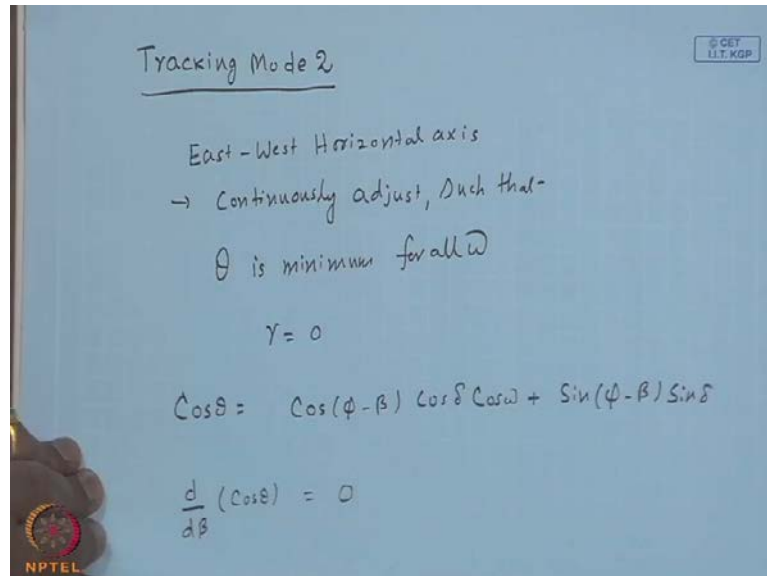 Tracking Mode 2
© CET
I.I.T. KGP
East-West Horizontal axis
→ Continuously adjust, such that
θ is minimum for all ω
γ = 0
Cosθ = Cos(φ-β) Cosδ Cosω + Sin(φ-β) Sinδ
d/dβ (Cosθ) = 0
NPTEL